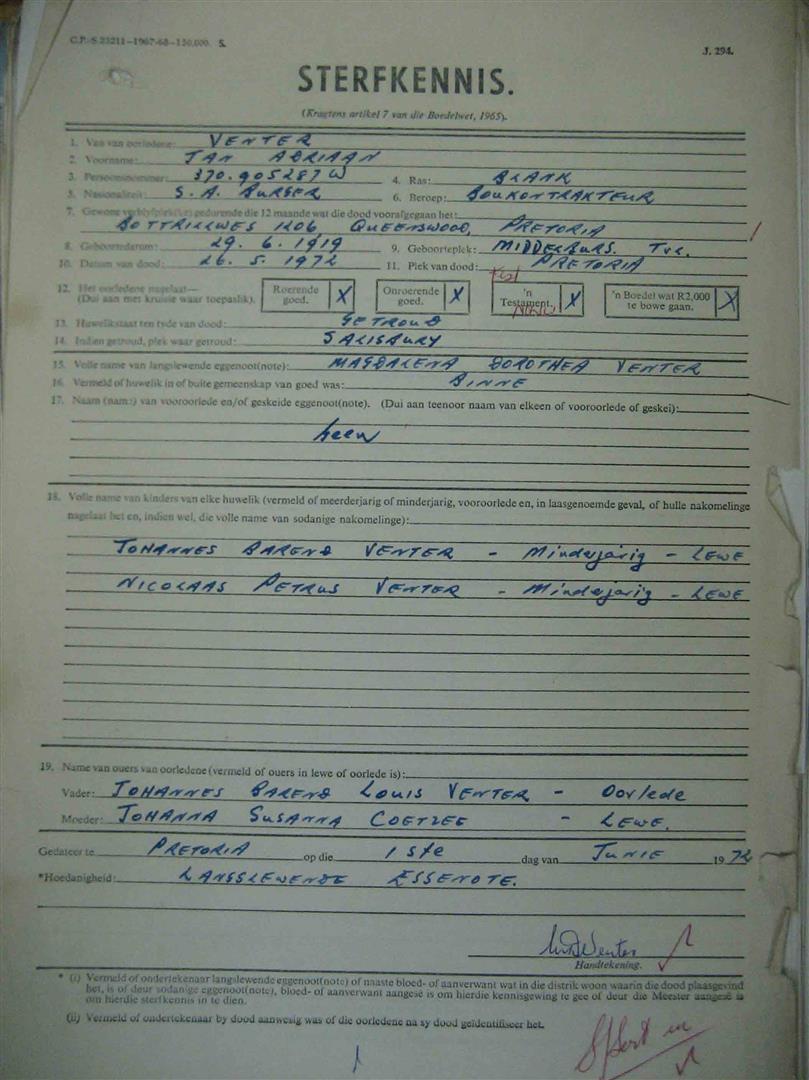 C.P.-S.23211—1967-68—150,000. S.
J. 294.
STERFKENNIS.
(Kragtens artikel 7 van die Boedelwet, 1965).
1. Van van oorledene: VENTER
2. Voorname: JAN ADRIAAN
3. Persoonsnommer: 370.905287W 4. Ras: BLANK
5. Nasionaliteit: S.A. BURGER 6. Beroep: BOUKONTRAKTEUR
7. Gewone verblyfplek(ke) gedurende die 12 maande wat die dood voorafgegaan het:
BOTTRILLWES 1206 QUEENSWOOD, PRETORIA
8. Geboortedatum: 29.6.1919 9. Geboorteplek: MIDDELBURG. TVL.
10. Datum van dood: 26.5.1972 11. Plek van dood: PRETORIA
12. Het oorledene nagelaat—
(Dui aan met kruisie waar toepaslik).
Roerende goed. X
Onroerende goed. X
'n Testament. X
'n Boedel wat R2,000 te bowe gaan. X
13. Huwelikstaat ten tyde van dood: GETROUD
14. Indien getroud, plek waar getroud: SALISBURY
15. Volle name van langslewende eggenoot(note): MAGDALENA DOROTHEA VENTER
16. Vermeld of huwelik in of buite gemeenskap van goed was: BINNE
17. Naam (name) van vooroorlede en/of geskeide eggenoot(note). (Dui aan teenoor naam van elkeen of vooroorlede of geskei):
Geen
18. Volle name van kinders van elke huwelik (vermeld of meerderjarig of minderjarig, vooroorlede en, in laasgenoemde geval, of hulle nakomelinge
nagelaat het en, indien wel, die volle name van sodanige nakomelinge):
JOHANNES BAREND VENTER - Minderjarig - LEWE
NICOLAAS PETRUS VENTER - Minderjarig - LEWE
19. Name van ouers van oorledene (vermeld of ouers in lewe of oorlede is):
Vader: JOHANNES BAREND LOUIS VENTER - Oorlede
Moeder: JOHANNA SUSANNA COETZEE - LEWE.
Gedateer te PRETORIA op die 1ste dag van JUNIE 1972
*Hoedanigheid: LANGSLEWENDE EGGENOTE.
MDVenter
Handtekening.
* (i) Vermeld of ondertekenaar langslewende eggenoot(note) of naaste bloed- of aanverwant wat in die distrik woon waarin die dood plaasgevind
het, is of deur sodanige eggenoot(note), bloed- of aanverwant aangesê is om hierdie kennisgewing te gee of deur die Meester aangesê is
om hierdie sterfkennis in te dien.
(ii) Vermeld of ondertekenaar by dood aanwesig was of die oorledene na sy dood geïdentifiseer het.